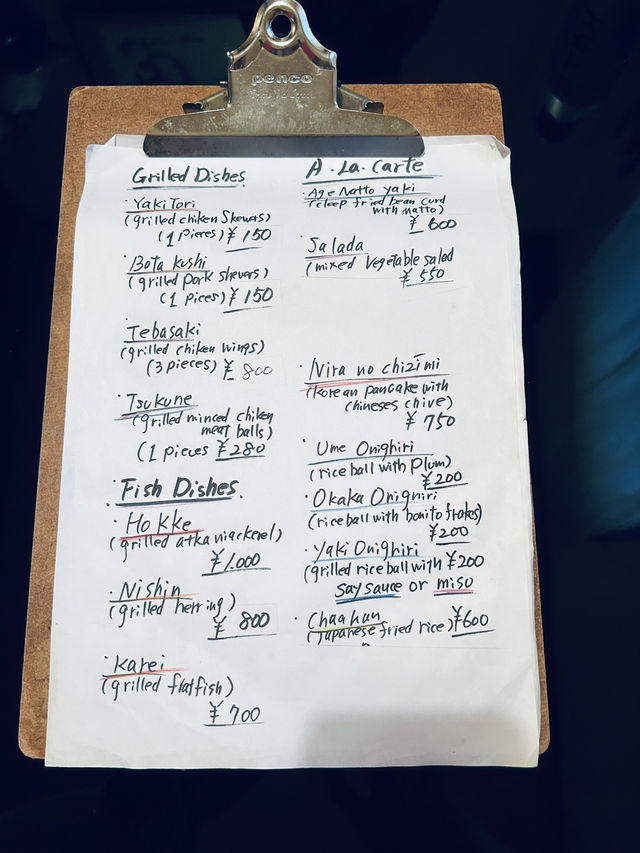 penco
Grilled Dishes
YakiTori
(grilled chiken Skewers)
(1 pieces) ¥150
Bata kushi
(grilled pork skevers)
(1 pices) ¥150
Tebasaki
(grilled chiken wings)
(3 pieces) ¥800
Tsukune
(grilled minced chiken
meat balls)
(1 pieces ¥280
Fish Dishes.
Hokke
(grilled atka mackerel)
¥1.000
Nishin
(grilled herring)
¥800
Karei
(grilled flatfish)
¥700
A.La.Carte
Age Natto yaki
(deep fried bean curd
with natto)
¥600
Salada
(mixed vegetable salad
¥550
Nira no chizimi
(korean pancake with
chineses chive)
¥750
Ume Onighiri
(rice ball with Plum)
¥200
Okaka Onighiri
(rice ball with bonito frakes)
¥200
Yaki Onighiri
(grilled rice ball with ¥200
Say sauce or miso
Chaahan
(Japanese fried rice) ¥600